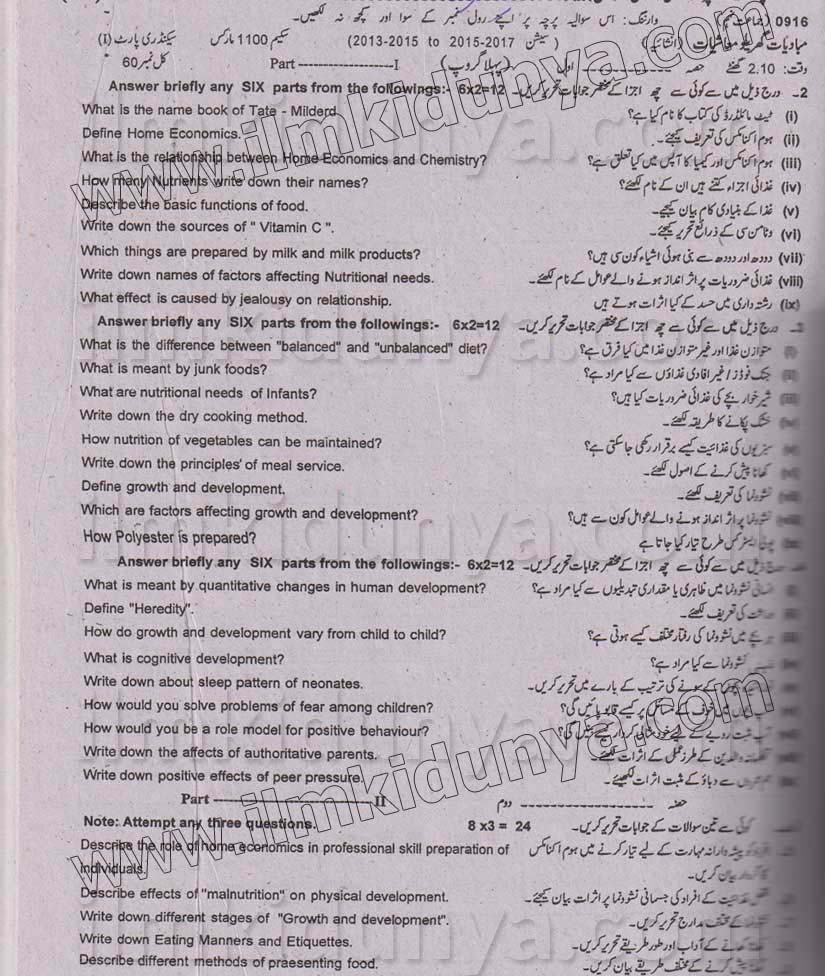 0916 وارننگ: اس سوالیہ پرچہ پر اپنے رول نمبر کے سوا اور کچھ نہ لکھیں۔
مبادیات گھریلو معاشیات (انشائیہ) (سیشن 2015-2017 to 2013-2015) سکیم 1100 مارکس سیکنڈری پارٹ (I)
وقت: 2.10 گھنٹے حصہ ---------- اول (پہلا گروپ) Part --------------------I کل نمبر 60
Answer briefly any SIX parts from the followings:- 6x2=12 2- درج ذیل میں سے کوئی سے چھ اجزا کے مختصر جوابات تحریر کریں۔
What is the name book of Tate - Milderd (i) ٹیٹ مائلڈرڈ کی کتاب کا نام کیا ہے؟
Define Home Economics. (ii) ہوم اکنامکس کی تعریف کیجئے۔
What is the relationship between Home Economics and Chemistry? (iii) ہوم اکنامکس اور کیمیا کا آپس میں کیا تعلق ہے؟
How many Nutrients write down their names? (iv) غذائی اجزاء کتنے ہیں ان کے نام لکھئے؟
Describe the basic functions of food. (v) غذا کے بنیادی کام بیان کیجئے۔
Write down the sources of " Vitamin C ". (vi) وٹامن سی کے ذرائع تحریر کیجئے۔
Which things are prepared by milk and milk products? (vii) دودھ اور دودھ سے بنی ہوئی اشیاء کون سی ہیں؟
Write down names of factors affecting Nutritional needs. (viii) غذائی ضروریات پر اثر انداز ہونے والے عوامل کے نام لکھئے۔
What effect is caused by jealousy on relationship. (ix) رشتہ داری میں حسد کے کیا اثرات ہوتے ہیں
Answer briefly any SIX parts from the followings:- 6x2=12 درج ذیل میں سے کوئی سے چھ اجزا کے مختصر جوابات تحریر کریں۔
What is the difference between "balanced" and "unbalanced" diet? (i) متوازن غذا اور غیر متوازن غذا میں کیا فرق ہے؟
What is meant by junk foods? جنک فوڈز / غیر افادی غذاؤں سے کیا مراد ہے؟
What are nutritional needs of Infants? شیر خوار بچے کی غذائی ضروریات کیا ہیں؟
Write down the dry cooking method. خشک پکانے کا طریقہ لکھئے۔
How nutrition of vegetables can be maintained? سبزیوں کی غذائیت کیسے برقرار رکھی جا سکتی ہے؟
Write down the principles of meal service. کھانا پیش کرنے کے اصول لکھئے۔
Define growth and development. نشوونما کی تعریف لکھئے۔
Which are factors affecting growth and development? نشوونما پر اثر انداز ہونے والے عوامل کون سے ہیں؟
How Polyester is prepared? کس طرح تیار کیا جاتا ہے
Answer briefly any SIX parts from the followings:- 6x2=12 میں سے کوئی سے چھ اجزا کے مختصر جوابات تحریر کریں۔
What is meant by quantitative changes in human development? نشوونما میں ظاہری یا مقداری تبدیلیوں سے کیا مراد ہے؟
Define "Heredity". کی تعریف لکھئے۔
How do growth and development vary from child to child? بچے میں نشوونما کی رفتار مختلف کیسے ہوتی ہے؟
What is cognitive development? نشوونما سے کیا مراد ہے؟
Write down about sleep pattern of neonates. کے سونے کی ترتیب کے بارے میں تحریر کریں۔
How would you solve problems of fear among children? میں خوف کے مسائل پر کیسے قابو پائیں گی؟
How would you be a role model for positive behaviour? مثبت رویے کے لیے
Write down the affects of authoritative parents. والدین کے طرز عمل کے اثرات لکھئے۔
Write down positive effects of peer pressure. دباؤ کے مثبت اثرات لکھیئے۔
Part --------------------II حصہ ---------------- دوم
Note: Attempt any three questions. 8 x3 = 24 کوئی سے تین سوالات کے جوابات تحریر کریں۔
Describe the role of home economics in professional skill preparation of افراد کو پیشہ ورانہ مہارت کے لیے تیار کرنے میں ہوم اکنامکس
individuals. کا کردار بیان کریں۔
Describe effects of "malnutrition" on physical development. غذائیت کے افراد کی جسمانی نشوونما پر اثرات بیان کیجئے۔
Write down different stages of "Growth and development". نشوونما کے مختلف مدارج تحریر کریں۔
Write down Eating Manners and Etiquettes. کھانا کھانے کے آداب اور طور طریقے تحریر کریں۔
Describe different methods of praesenting food. کھانا پیش کرنے کے مختلف طریقے بیان کریں۔
www.ilmkidunya.com
www.ilmkidunya.com